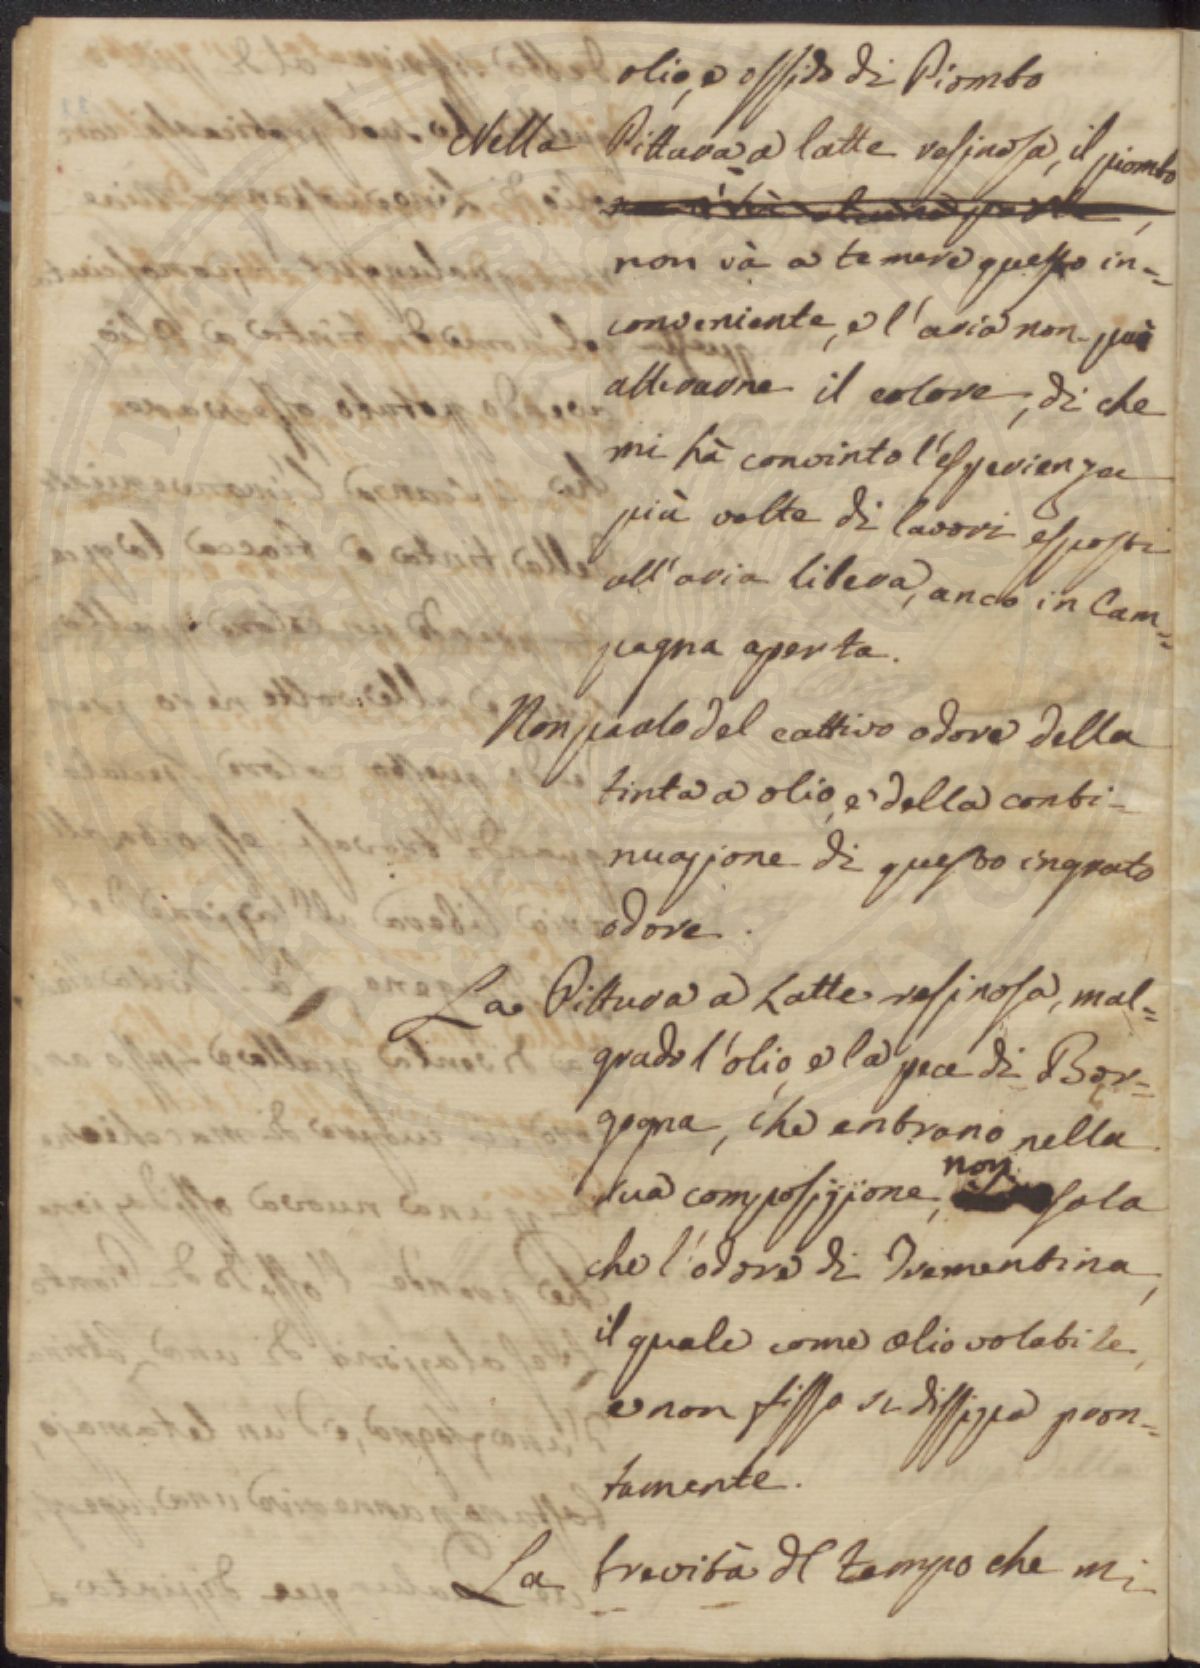 olio, e ossido di Piombo
Nella Pittura a latte resinosa, il piombo
non và a temere questo in=
conveniente, e l'aria non può
alterarne il colore, di che
mi hà convinto l'esperienza
più volte di lavori esposti
all'aria libera, anco in Cam=
pagna aperta.
Non parlo del cattivo odore della
tinta a olio, e della conti-
nuazione di questo ingrato
odore.
La Pittura a Latte resinosa, mal=
grado l'olio, e la pece di Bor=
gogna, che entrano nella
sua composizione, non esala
che l'odore di Trementina,
il quale come olio volatile,
e non fisso si dissipa pron=
tamente.
La brevità del tempo che mi